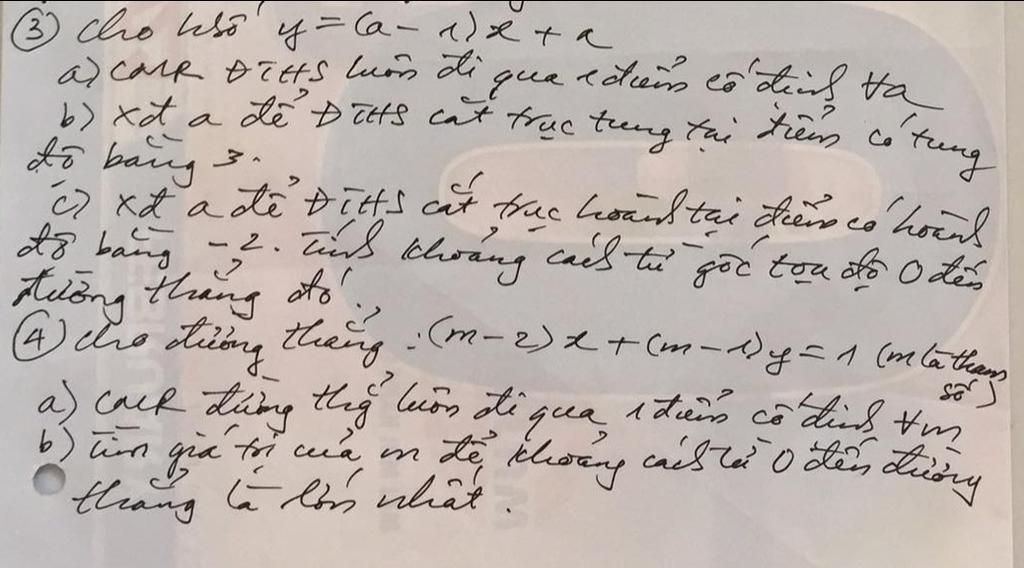 ③ Cho hsố y = (a - 1)x + a
a) CMR ĐTHS luôn đi qua 1 điểm cố định ∀a
b) Xđ a để ĐTHS cắt trục tung tại điểm có tung
độ bằng 3.
c) Xđ a để ĐTHS cắt trục hoành tại điểm có hoành
độ bằng -2. Tính khoảng cách từ gốc tọa độ O đến
đường thẳng đó.
④ Cho đường thẳng : (m-2)x + (m-1)y = 1 (m là tham
số)
a) CMR đường thg luôn đi qua 1 điểm cố định ∀m
b) Tìm giá trị của m để khoảng cách từ O đến đường
thẳng là lớn nhất.